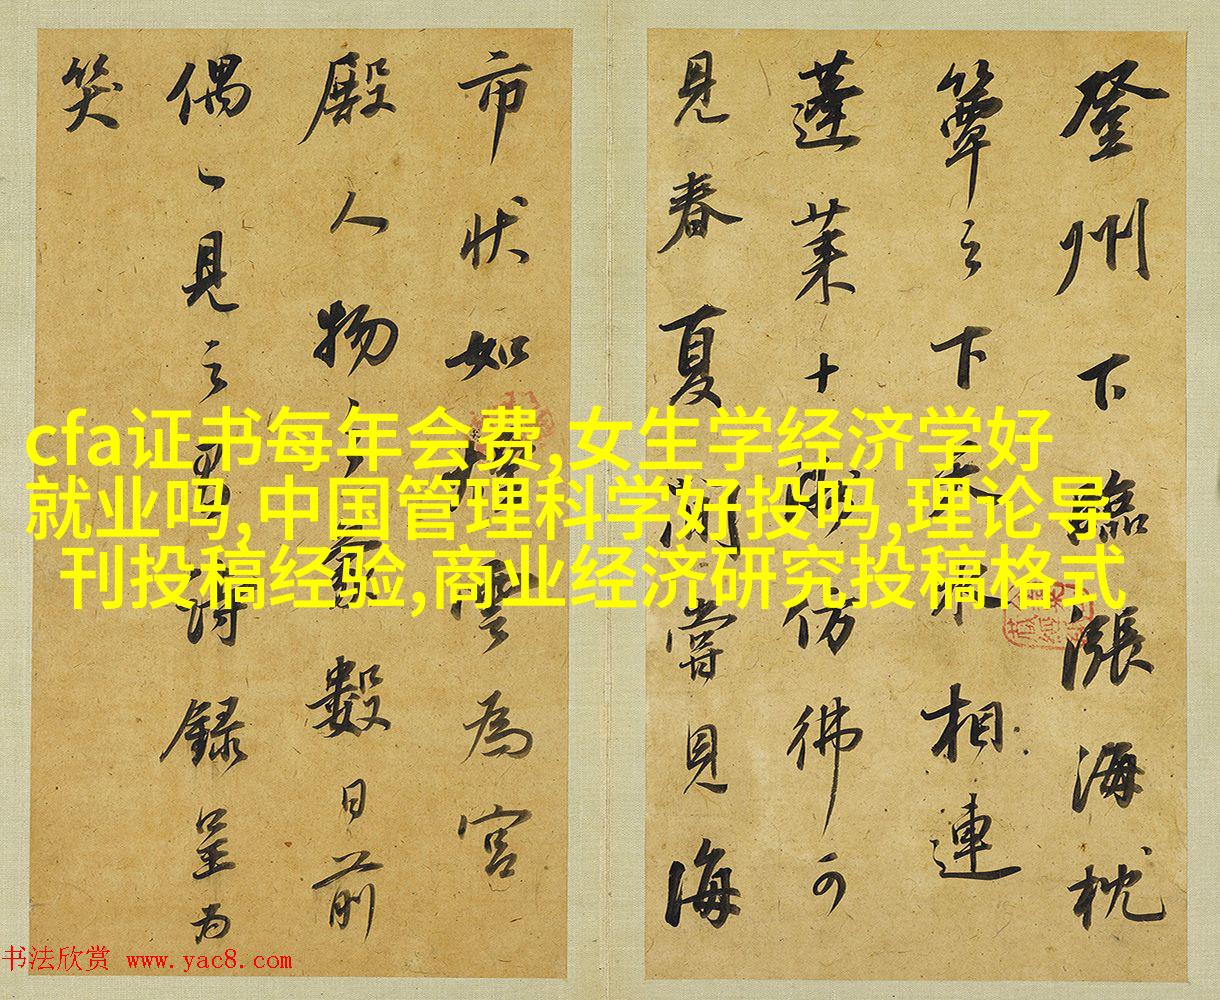 登州下臨漲海枕
簟之下天水相連
蓬莱十仿彿可
見春夏間嘗見海
市状如雲為宮
殿人物之象數日前
偶一見之詩録呈為
笑
cfa证书每年会费,女生学经济学好
就业吗,中国管理科学好投吗,理论导
刊投稿经验,商业经济研究投稿格式
书法欣赏 www.yac8.com